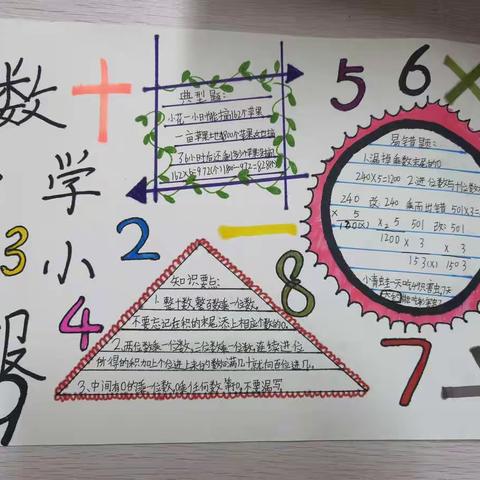 数
学
小
报
+
5
6
×
3
2
4
8
7
9
典型题:
小花一小时能摘162个苹果
一亩苹果地
162×5=972(个)1800-972=828(个)
易错题:
1.漏掉乘数末尾的0
240×5=1200 2.进位数与十位数
240 改:240 乘而出错 501×3=
× 5 × 5 501 改:501
1200 × 3 × 3
153(×) 1503
小青蛙一天吃
知识要点:
1.整十数、整百数乘一位数,
不要忘记在积的末尾添上相应个数的0。
2.两位数乘一位数、三位数乘一位数,连续进位
所得的积加上个位进上来的数如满几十就向百位进几。
3、中间有0的乘一位数,0乘任何数等于0,不要漏写